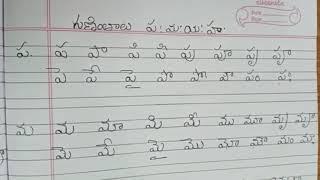 గుణింతాలు ప: మ: య: హ:
ప. ప పా పి పీ పు పూ పృ పౄ
పె పే పై పొ పో పౌ పం పః
మ మ మా మి మీ ము మూ మృ మౄ
మె మే మై మొ మో మౌ మం మః